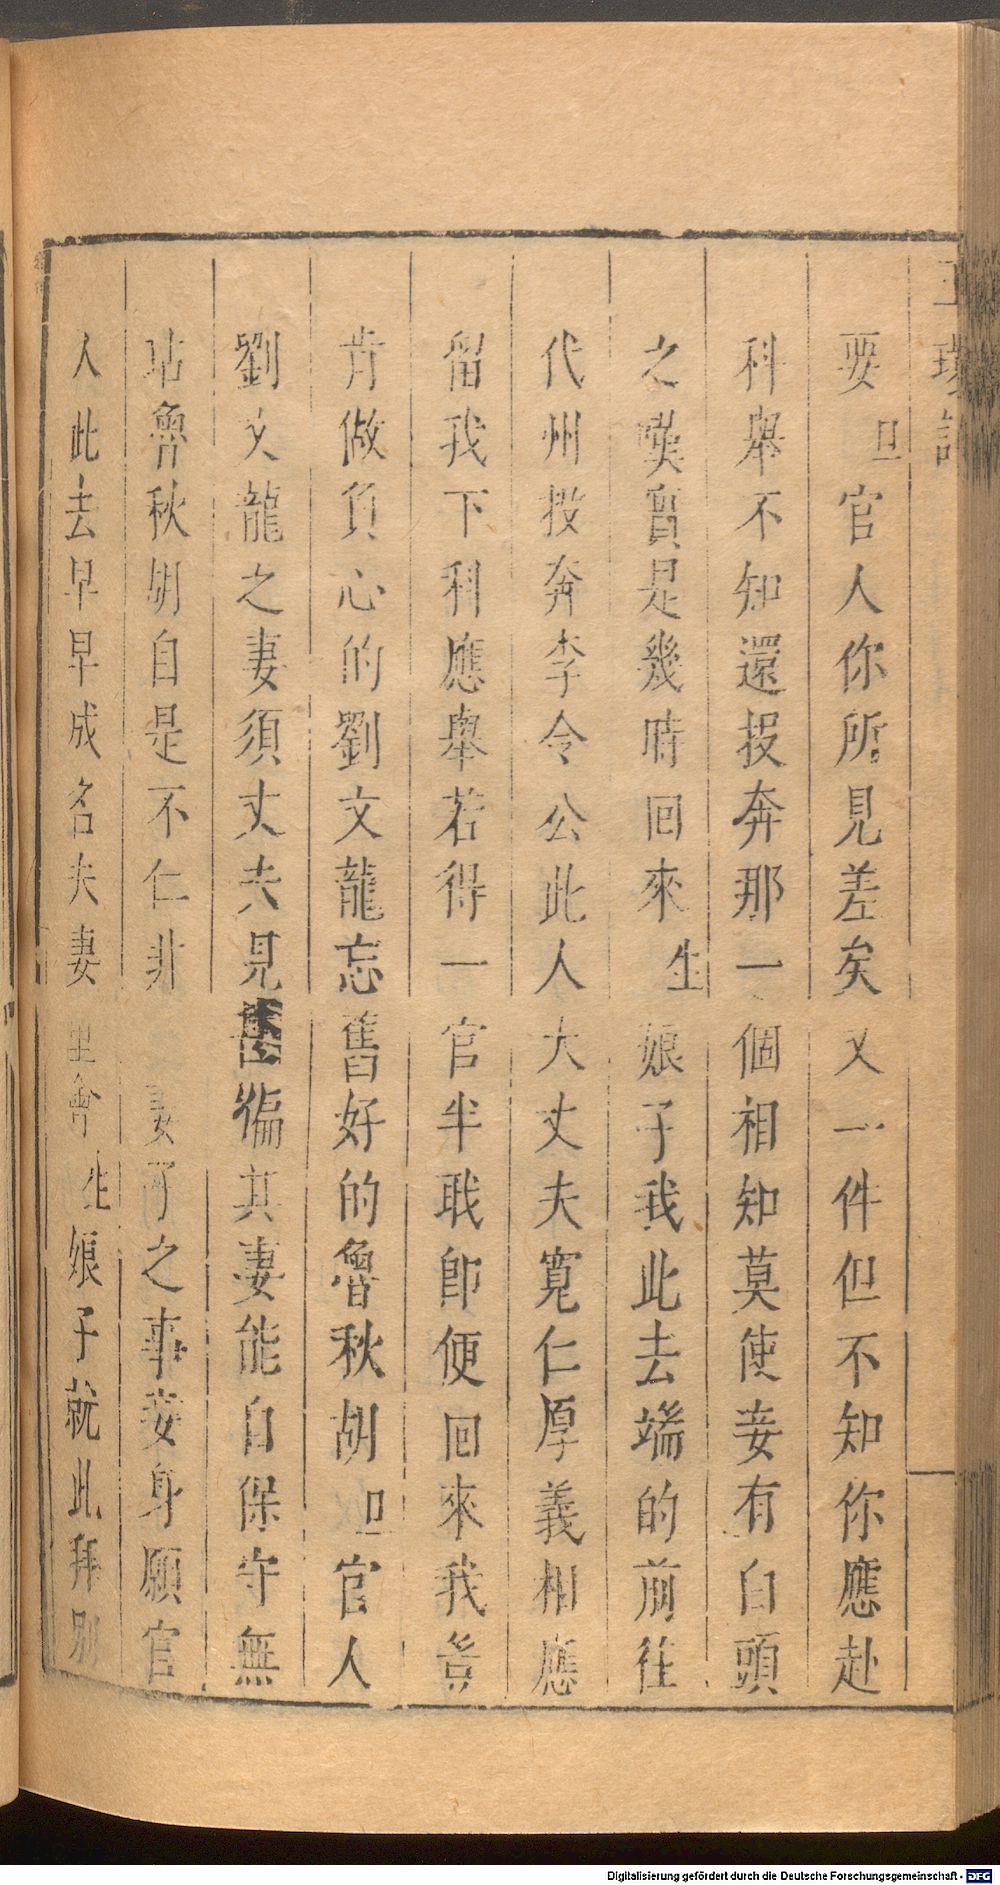 玉環記
要旦官人你所見差矣又一件但不知你應赴
科舉不知還投奔那一個相知莫使妾有白頭
之嘆實是幾時回來生娘子我此去端的前往
代州投奔李令公此人大丈夫寬仁厚義相應
留我下科應舉若得一官半职即便回來我豈
肯做負心的劉文龍忘舊好的魯秋胡旦官人
劉文龍之妻須丈夫見偏其妻能自保守無
玷魯秋胡自是不仁非妻子之事妾身願官
人此去早早成名夫妻會生娘子就此拜別
Digitalisierung gefördert durch die Deutsche Forschungsgemeinschaft - DFG